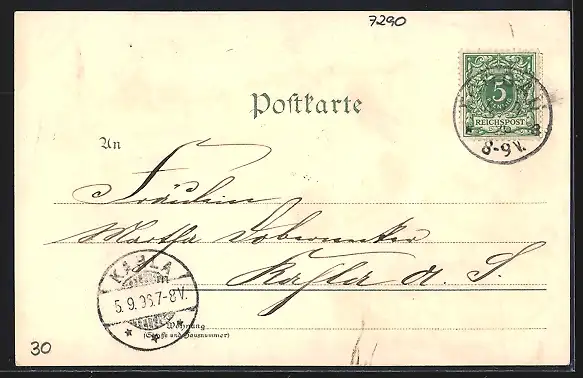 7290
5
REICHSPOST
8-9 V.
Postkarte
An
Fräulein
Martha Doberenecker
Kahla a. S.
KAHLA
5. 9. 98. 7-8 V.
Wohnung
(Straße und Hausnummer)
30